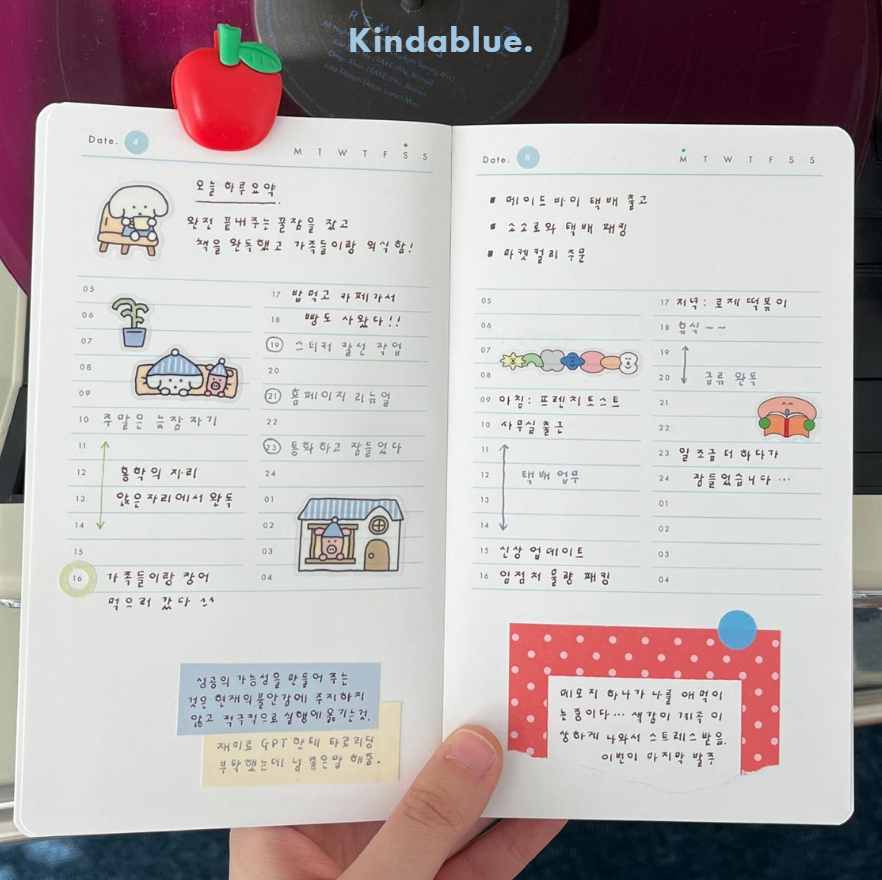 Kindablue.
Date. 4
M T W T F S S
오늘 하루요약
완전 끝내주는 꿀잠을 잤고
책을 완독했고 가족들이랑 외식함!
05
06
07
08
09
10 주말은 늦잠 자기
11
12 홍학의 자리
13 앉은자리에서 완독
14
15
16 가족들이랑 장어
먹으러 갔다 ^^
17 밥먹고 카페가서
18 빵도 사왔다!!
19 스티커 칼선 작업
20
21 홈페이지 리뉴얼
22
23 통화하고 잠들었다
24
01
02
03
04
성공의 가능성을 만들어 주는
것은 현재의 불안감에 주저하지
않고 적극적으로 실행에 옮기는것.
재미로 GPT 한테 타로리딩
부탁했는데 넘 좋은말 해줌.
Date. 6
M T W T F S S
메이드바이 택배 출고
소소로와 택배 패킹
마켓컬리 주문
05
06
07
08
09 아침: 프렌치토스트
10 사무실출근
11
12 택배 업무
13
14
15 신상 업데이트
16 입점처 물량 패킹
17 저녁: 로제 떡볶이
18 휴식~~
19
20 급류 완독
21
22
23 일 조금 더 하다가
24 잠들었습니다...
01
02
03
04
메모지 하나가 나를 애먹이
는중이다... 색감이 계속 이
상하게 나와서 스트레스받음.
이번이 마지막 발주